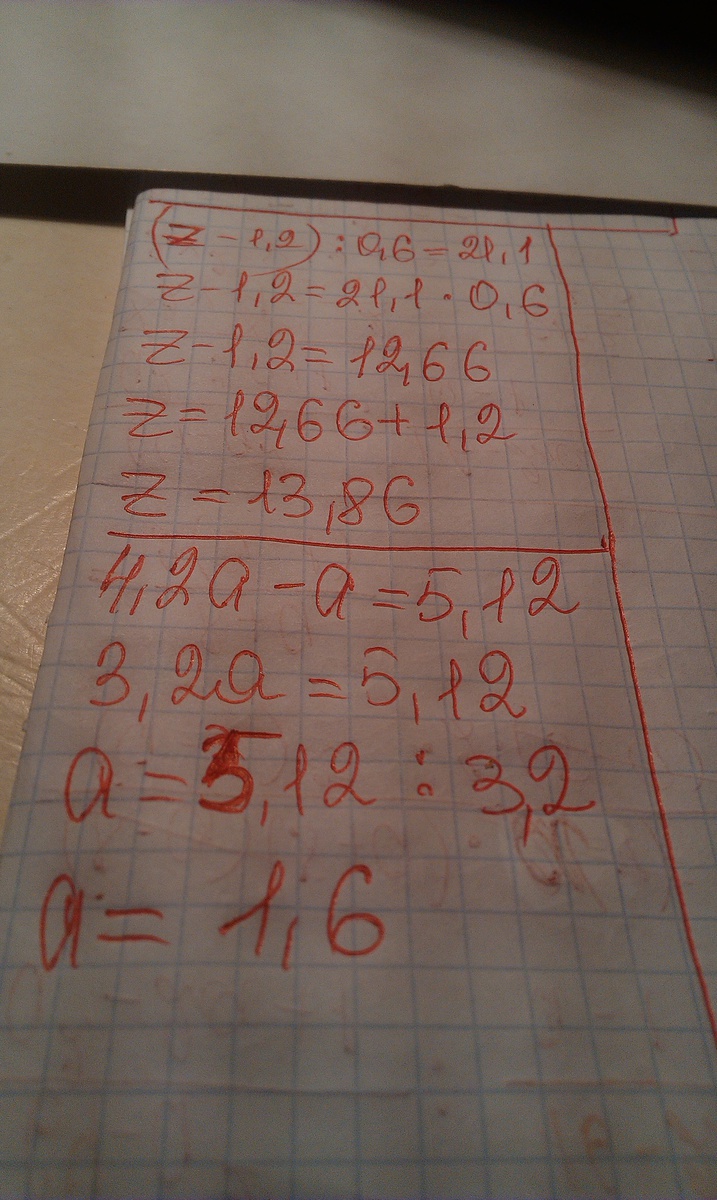 (z - 1,2) : 0,6 = 21,1
z - 1,2 = 21,1 · 0,6
z - 1,2 = 12,66
z = 12,66 + 1,2
z = 13,86
4,2a - a = 5,12
3,2a = 5,12
a = 5,12 : 3,2
a = 1,6